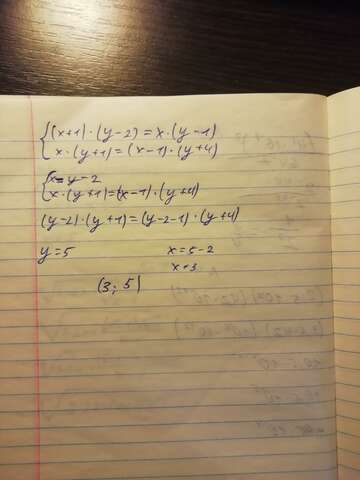 {(x+1)·(y-2)=x·(y-1)
x·(y+1)=(x-1)·(y+4)
{x=y-2
x·(y+1)=(x-1)·(y+4)
(y-2)·(y+1)=(y-2-1)·(y+4)
y=5 x=5-2
x=3
(3; 5)